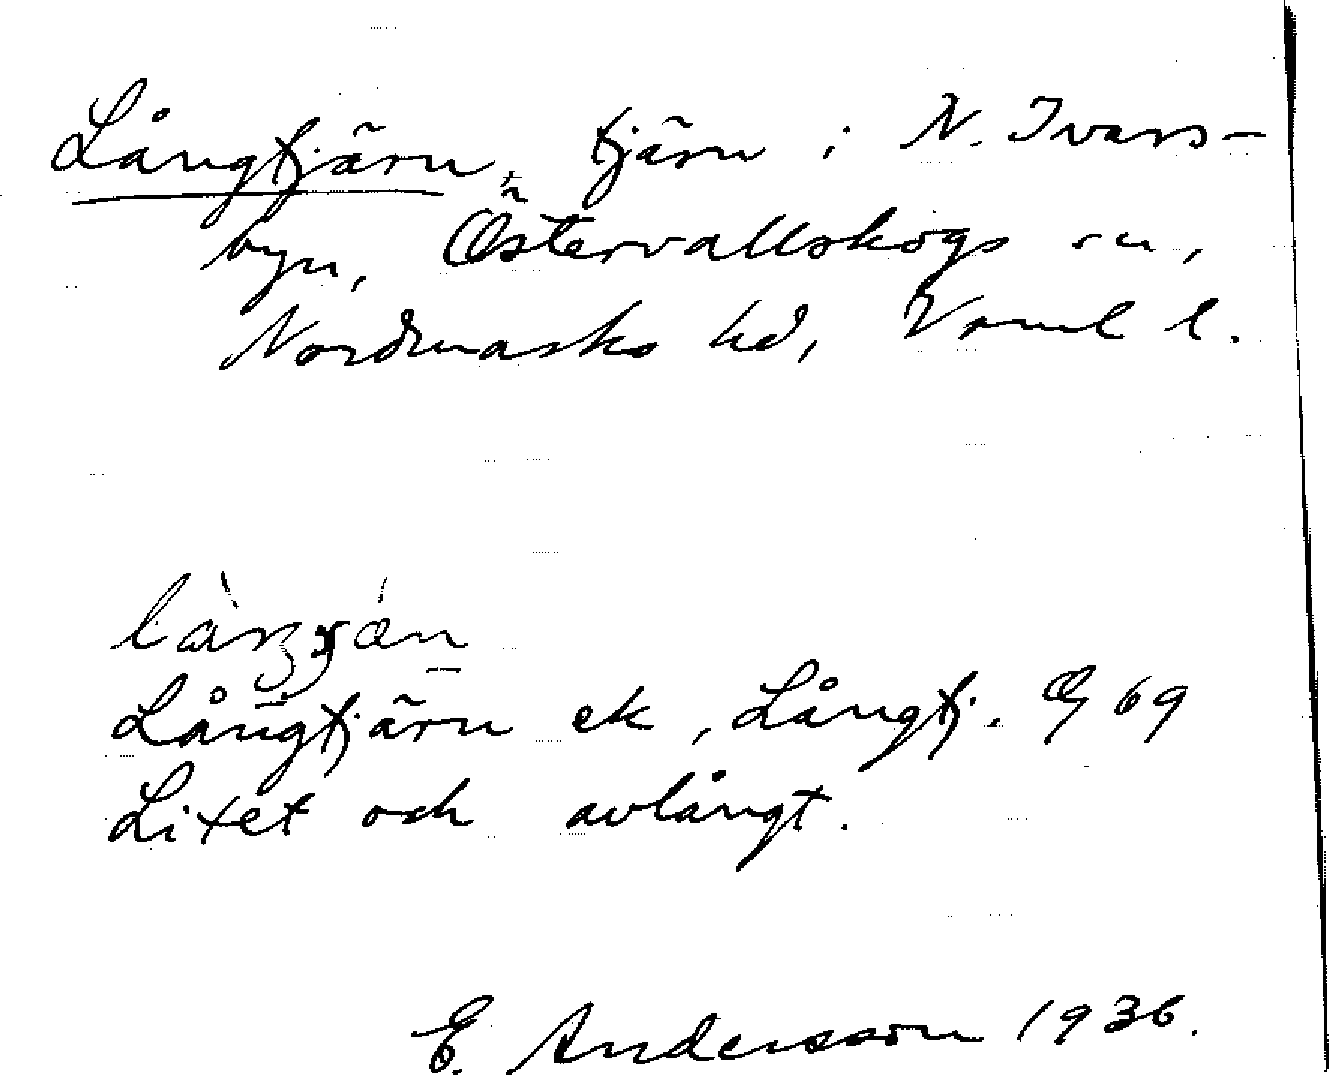 Långtjärn, tjärn i N. Ivars-
byn, Östervallskogs sn,
Nordmarks hd, Värml l.
Långtjärn ek, Långtj. G 69
Litet och avlångt.
E. Andersson 1936.